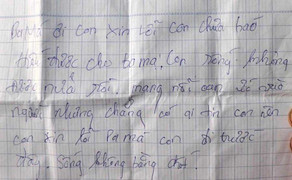 Ba Má ơi con xin lỗi con chưa báo
hiếu được cho ba má, con sống không
được nữa rồi, mang nỗi oan ức
người nhưng chẳng có ai tin con nên
con xin lỗi Ba má con đi trước
đây. Sống không bằng chết